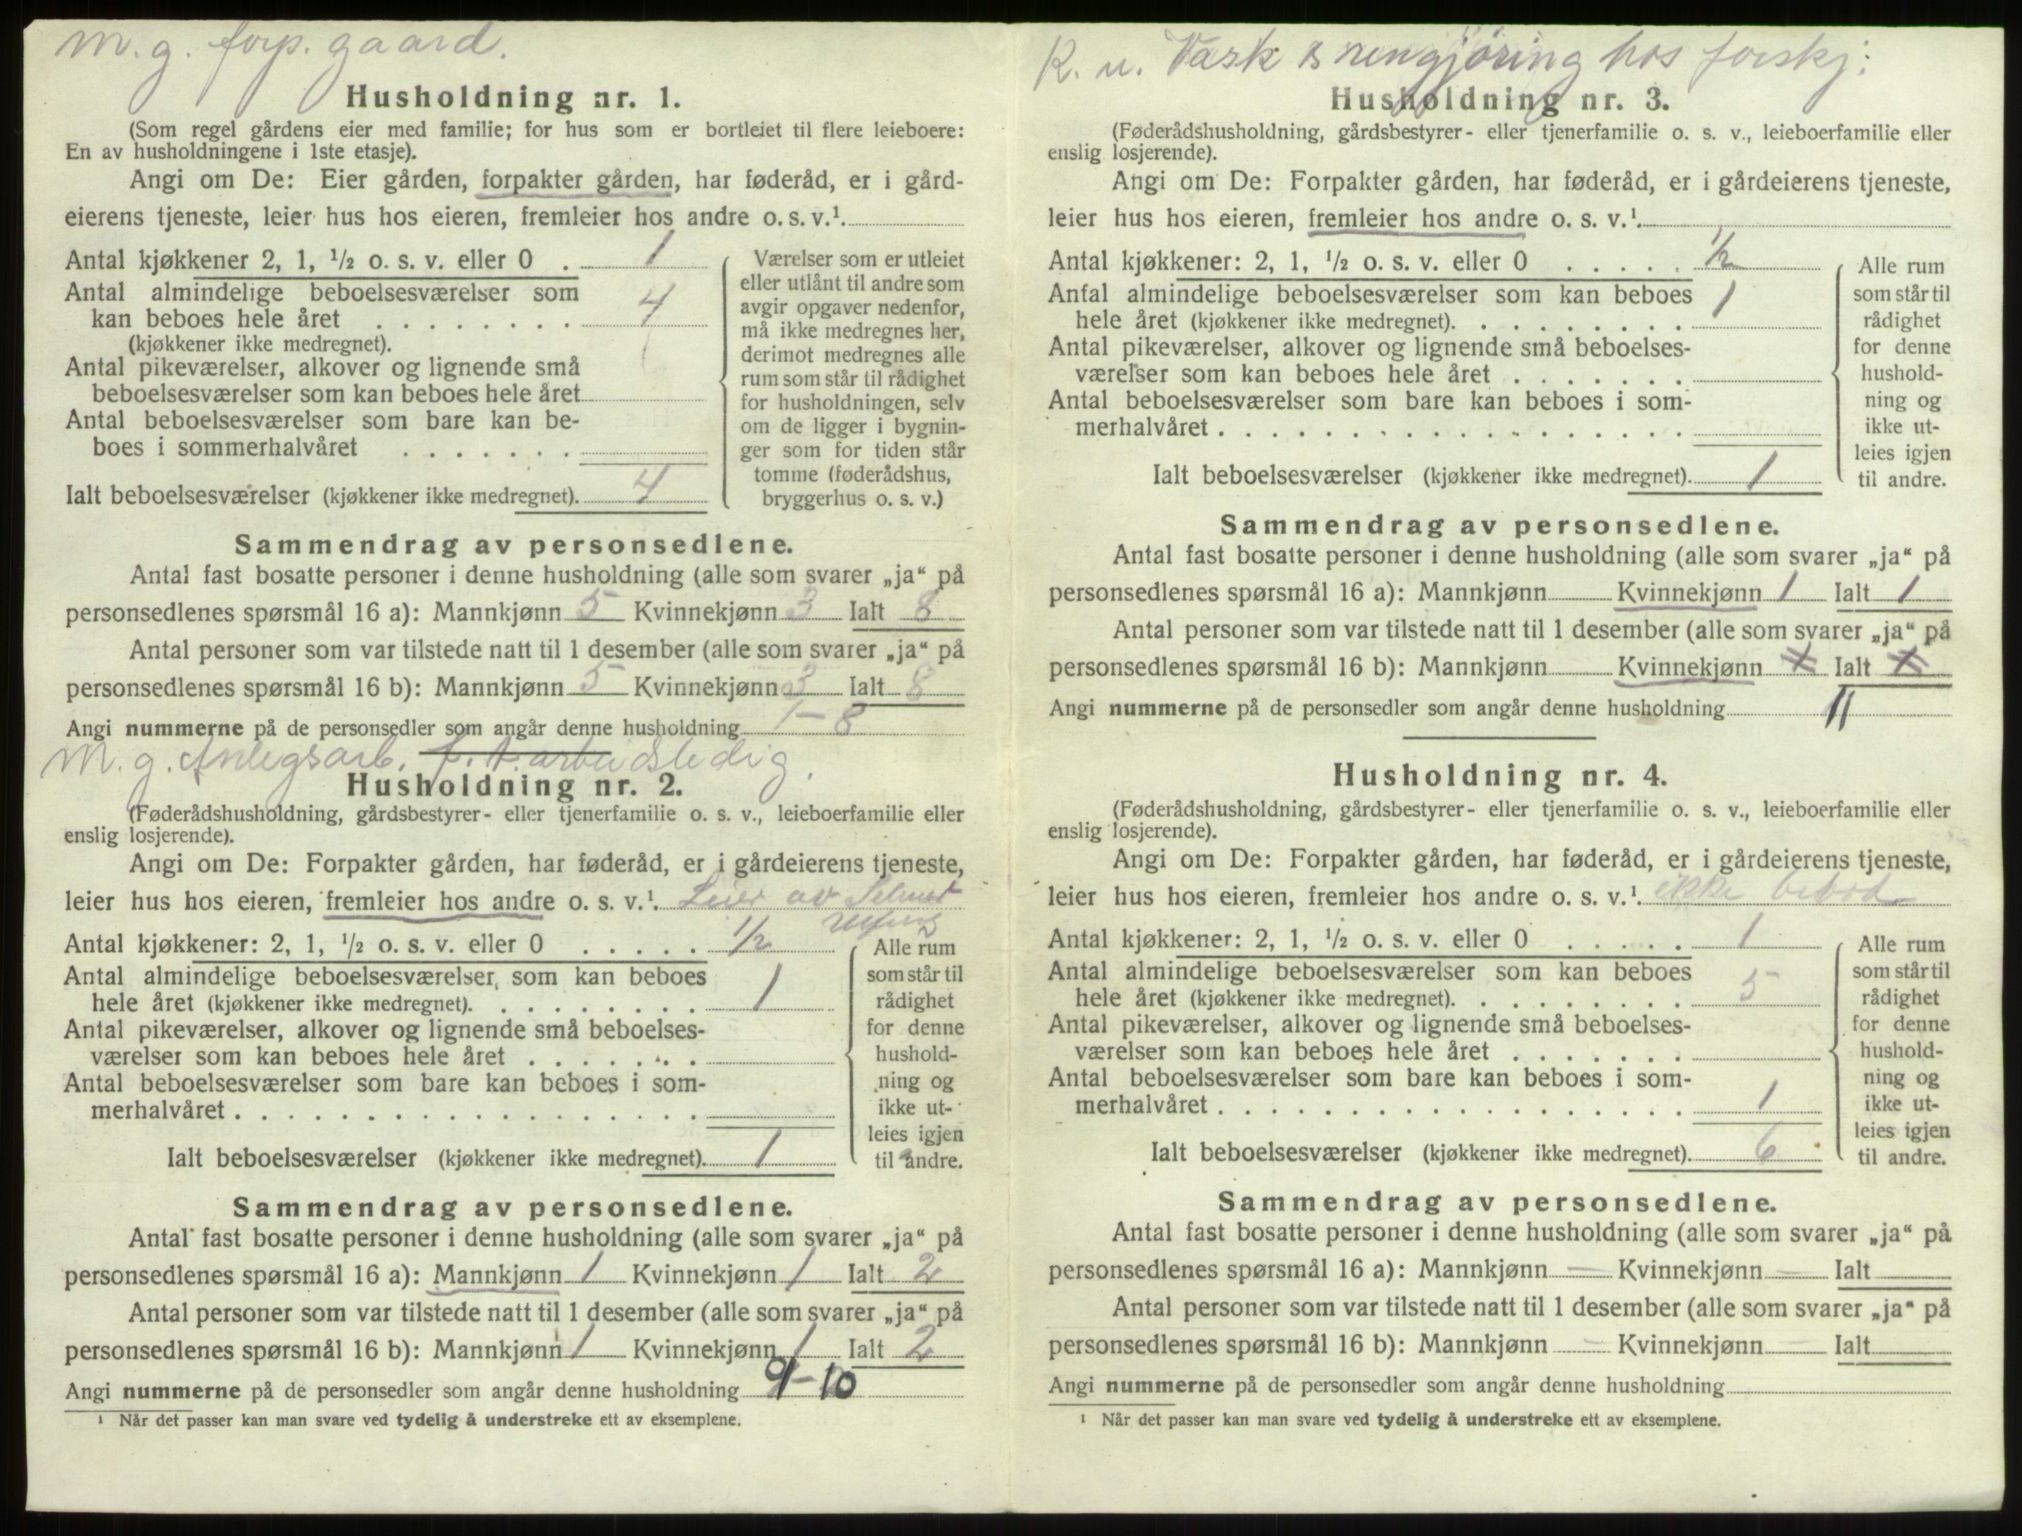 m. g. forp. gaard.
Husholdning nr. 1.
(Som regel gårdens eier med familie; for hus som er bortleiet til flere leieboere:
En av husholdningene i 1ste etasje).
Angi om De: Eier gården, forpakter gården, har føderåd, er i gård-
eierens tjeneste, leier hus hos eieren, fremleier hos andre o. s. v.¹
Antal kjøkkener 2, 1, ½ o. s. v. eller 0 . 1
Antal almindelige beboelsesværelser som
kan beboes hele året . . . . . . . . 4
(kjøkkener ikke medregnet).
Antal pikeværelser, alkover og lignende små
beboelsesværelser som kan beboes hele året
Antal beboelsesværelser som bare kan be-
boes i sommerhalvåret . . . . . . .
Ialt beboelsesværelser (kjøkkener ikke medregnet). 4
Værelser som er utleiet
eller utlånt til andre som
avgir opgaver nedenfor,
må ikke medregnes her,
derimot medregnes alle
rum som står til rådighet
for husholdningen, selv
om de ligger i bygnin-
ger som for tiden står
tomme (føderådshus,
bryggerhus o. s. v.)
Sammendrag av personsedlene.
Antal fast bosatte personer i denne husholdning (alle som svarer „ja“ på
personsedlenes spørsmål 16 a): Mannkjønn 5 Kvinnekjønn 3 Ialt 8
Antal personer som var tilstede natt til 1 desember (alle som svarer „ja“ på
personsedlenes spørsmål 16 b): Mannkjønn 5 Kvinnekjønn 3 Ialt 8
Angi nummerne på de personsedler som angår denne husholdning 1-8
m. g. Anlegsarb. f. t. arbeidsledig.
Husholdning nr. 2.
(Føderådshusholdning, gårdsbestyrer- eller tjenerfamilie o. s. v., leieboerfamilie eller
enslig losjerende).
Angi om De: Forpakter gården, har føderåd, er i gårdeierens tjeneste,
leier hus hos eieren, fremleier hos andre o. s. v.¹ Leier av
Antal kjøkkener: 2, 1, ½ o. s. v. eller 0 . . . . . ½
Antal almindelige beboelsesværelser som kan beboes
hele året (kjøkkener ikke medregnet). . . . . . . . . 1
Antal pikeværelser, alkover og lignende små beboelses-
værelser som kan beboes hele året . . . . . . .
Antal beboelsesværelser som bare kan beboes i som-
merhalvåret . . . . . . . . . . . . . . . . . .
Ialt beboelsesværelser (kjøkkener ikke medregnet). 1
Alle rum
som står til
rådighet
for denne
hushold-
ning og
ikke ut-
leies igjen
til andre.
Sammendrag av personsedlene.
Antal fast bosatte personer i denne husholdning (alle som svarer „ja“ på
personsedlenes spørsmål 16 a): Mannkjønn 1 Kvinnekjønn 1 Ialt 2
Antal personer som var tilstede natt til 1 desember (alle som svarer „ja“ på
personsedlenes spørsmål 16 b): Mannkjønn 1 Kvinnekjønn 1 Ialt 2
Angi nummerne på de personsedler som angår denne husholdning 9-10
¹ Når det passer kan man svare ved tydelig å understreke ett av eksemplene.
K. u. Vask & rengjøring hos forskj:
Husholdning nr. 3.
(Føderådshusholdning, gårdsbestyrer- eller tjenerfamilie o. s. v., leieboerfamilie eller
enslig losjerende).
Angi om De: Forpakter gården, har føderåd, er i gårdeierens tjeneste,
leier hus hos eieren, fremleier hos andre o. s. v.¹
Antal kjøkkener: 2, 1, ½ o. s. v. eller 0 . . . . . ½
Antal almindelige beboelsesværelser som kan beboes
hele året (kjøkkener ikke medregnet). . . . . . . . . 1
Antal pikeværelser, alkover og lignende små beboelses-
værelser som kan beboes hele året . . . . . . .
Antal beboelsesværelser som bare kan beboes i som-
merhalvåret . . . . . . . . . . . . . . . . . .
Ialt beboelsesværelser (kjøkkener ikke medregnet). 1
Alle rum
som står til
rådighet
for denne
hushold-
ning og
ikke ut-
leies igjen
til andre.
Sammendrag av personsedlene.
Antal fast bosatte personer i denne husholdning (alle som svarer „ja“ på
personsedlenes spørsmål 16 a): Mannkjønn Kvinnekjønn 1 Ialt 1
Antal personer som var tilstede natt til 1 desember (alle som svarer „ja“ på
personsedlenes spørsmål 16 b): Mannkjønn Kvinnekjønn Ialt
Angi nummerne på de personsedler som angår denne husholdning 11
Husholdning nr. 4.
(Føderådshusholdning, gårdsbestyrer- eller tjenerfamilie o. s. v., leieboerfamilie eller
enslig losjerende).
Angi om De: Forpakter gården, har føderåd, er i gårdeierens tjeneste,
leier hus hos eieren, fremleier hos andre o. s. v.¹ ikke bebod
Antal kjøkkener: 2, 1, ½ o. s. v. eller 0 . . . . . 1
Antal almindelige beboelsesværelser som kan beboes
hele året (kjøkkener ikke medregnet). . . . . . . . . 5
Antal pikeværelser, alkover og lignende små beboelses-
værelser som kan beboes hele året . . . . . . .
Antal beboelsesværelser som bare kan beboes i som-
merhalvåret . . . . . . . . . . . . . . . . . . 1
Ialt beboelsesværelser (kjøkkener ikke medregnet). 6
Alle rum
som står til
rådighet
for denne
hushold-
ning og
ikke ut-
leies igjen
til andre.
Sammendrag av personsedlene.
Antal fast bosatte personer i denne husholdning (alle som svarer „ja“ på
personsedlenes spørsmål 16 a): Mannkjønn — Kvinnekjønn — Ialt
Antal personer som var tilstede natt til 1 desember (alle som svarer „ja“ på
personsedlenes spørsmål 16 b): Mannkjønn — Kvinnekjønn — Ialt
Angi nummerne på de personsedler som angår denne husholdning
¹ Når det passer kan man svare ved tydelig å understreke ett av eksemplene.